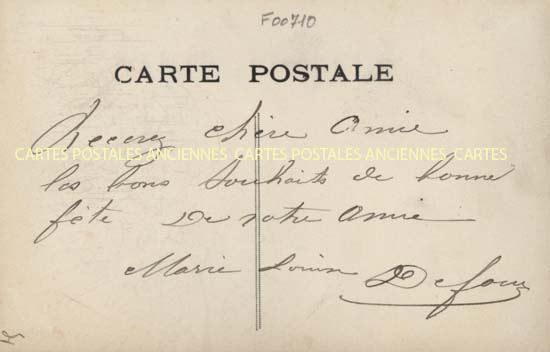 F00710
CARTE POSTALE
Recevez chère Amie
CARTES POSTALES ANCIENNES CARTES POSTALES ANCIENNES CARTES
les bons souhaits de bonne
fête De votre amie
Marie Louise Defour